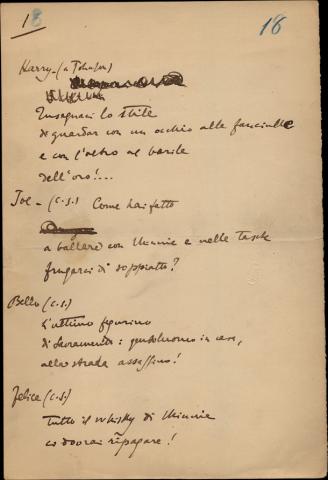 18 18
Harry - (a Johnson)
Insegnaci lo stile
di guardar con un occhio alle fanciulle
e con l'altro al barile
dell'oro!...
Joe - (c.s.) Come hai fatto
a ballare con Minnie e nelle tasche
frugarci di soppiatto?
Bello (c.s.)
L'ultimo figurino
di Sacramento: gentiluomo in casa,
alla strada assassino!
Felice (c.s.)
Tutto il whisky di Minnie
ci dovrai ripagare!